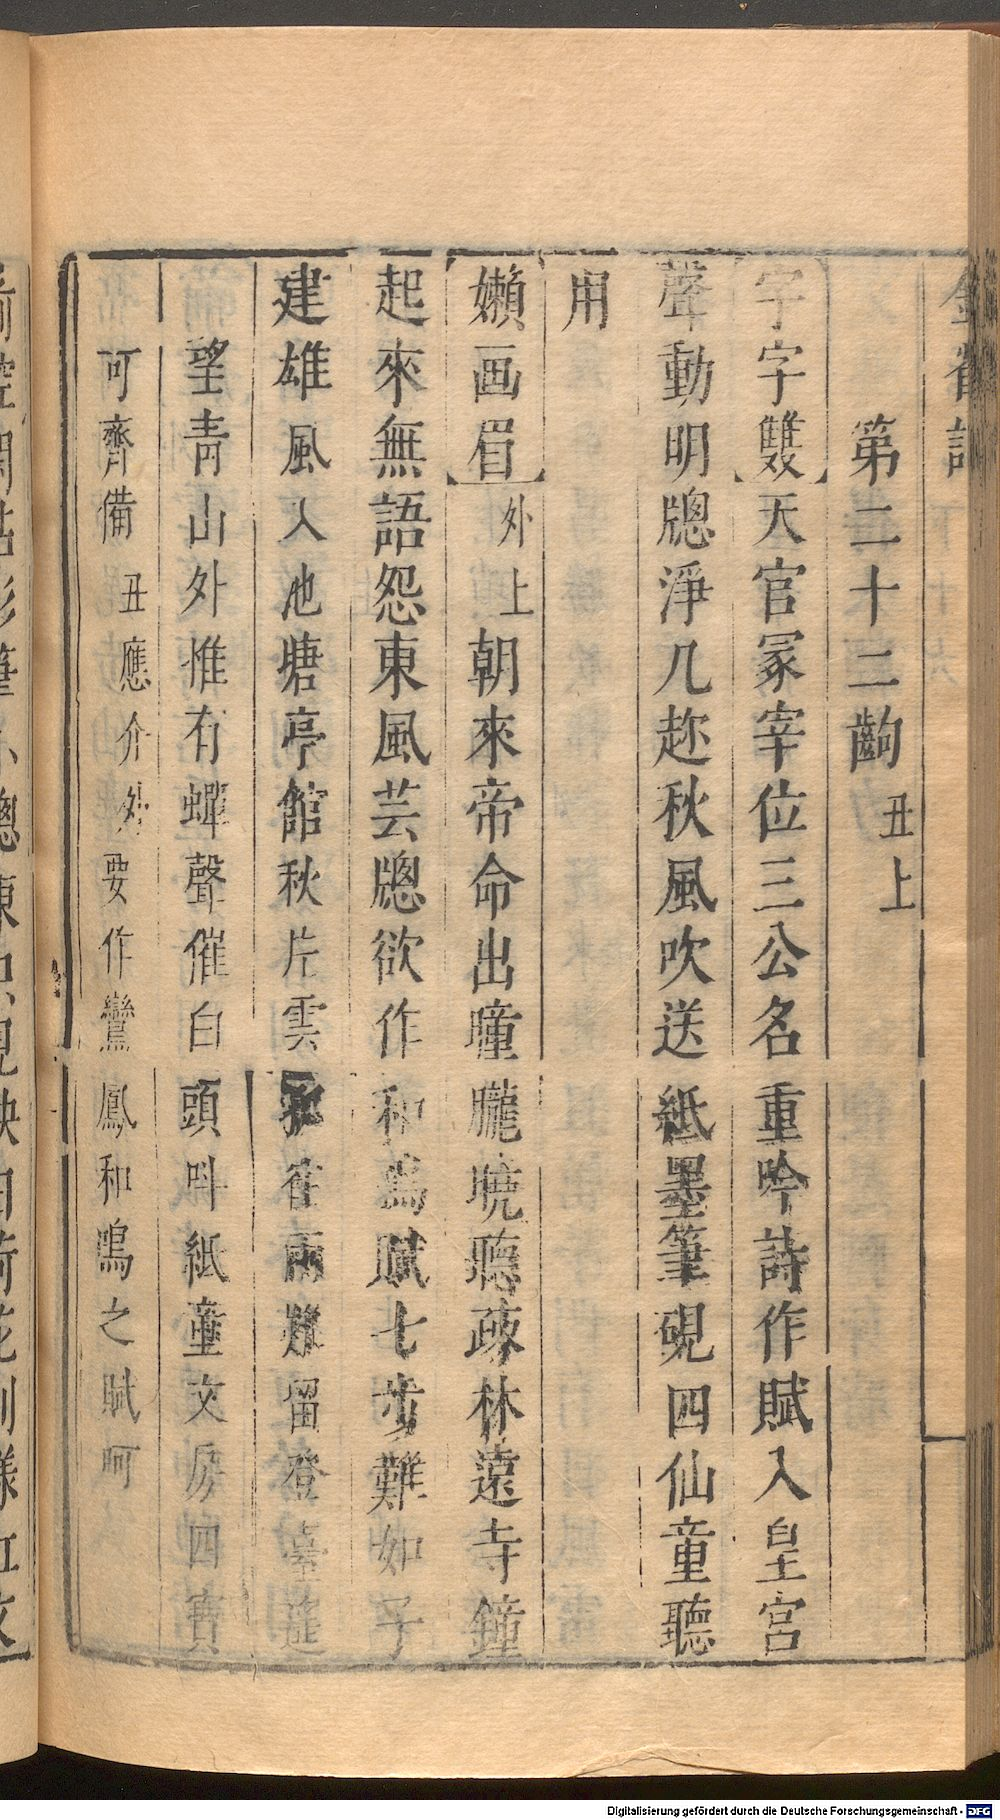 金雀記
第二十二齣 丑上
字字雙天官冢宰位三公名重吟詩作賦入皇宮
聲動明牕淨几趂秋風吹送紙墨筆硯四仙童聽
用
嬾画眉外上朝來帝命出曈朧曉聽疎林遠寺鐘
起來無語怨東風芸牕欲作和鳴賦七步難如子
建雄風入池塘亭館秋片云雲 雀兩難留登臺
望青山外惟有蟬聲催白頭呌紙童文房四寶
可齊備丑應介外要作鸞鳳和鳴之賦呵
Digitalisierung gefördert durch die Deutsche Forschungsgemeinschaft - DFG